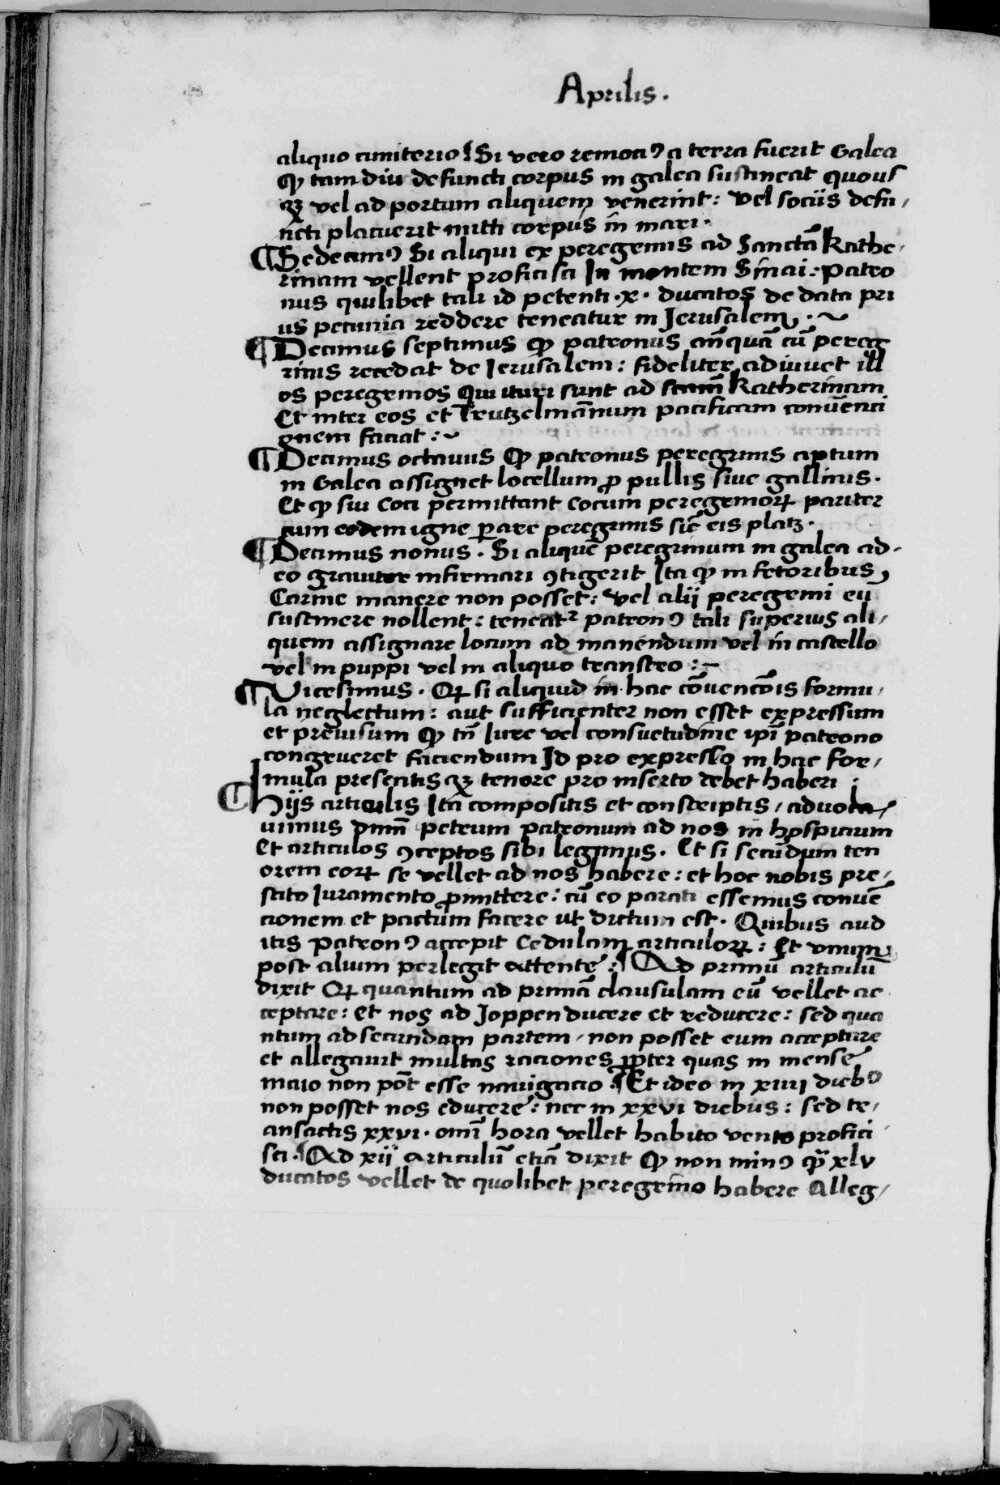 Aprilis.
aliquo cimiterio ¶ Si vero remotꝰ a terra fuerit Galea
ꝙ tam diu defuncti corpus in galea sustineat quous
qꝫ vel ad portum aliquem venerint: vel sociis defu/
ncti placuerit mitti corpus in mari.
¶ Sedecimꝰ Si aliqui ex peregrinis ad Sanctā Kathe/
rinam vellent proficisci In montem Sinai: Patro
nus quilibet tali id petenti .x. ducatos de data pri
us pecunia reddere teneatur in Jerusalem .~
¶ Decimus septimus ꝙ patronus cū pereg
rinis recedat de Jerusalem: fideliter adiuuet ill
os peregrinos Qui ituri sunt ad Katherinam
Et inter eos et Trutzelmānum pacificam conuenci
onem faciat :~
¶ Decimus octauus ꝙ patronus peregrinis aptum
in Galea assignet locellum ꝓ pullis siue gallinis.
Et ꝙ sui Coci permittant cocum peregrinorꝝ pariter
cum eodem igne ꝑare peregrinis sic̄ eis placꝫ.
¶ Decimus nonus. Si aliquē peregrinum in galea ad-
eo grauiter infirmari ꝯtigerit Ita ꝙ in fetoribus
Carine manere non posset: vel alii peregrini eū
sustinere nollent: teneatᷣ patronꝰ tali superius ali/
quem assignare locum ad manendum vel in castello
vel in puppi vel in aliquo transtro :~
¶ Vicesimus. Qꝝ si aliquid in hac cōuencōis formu/
la neglectum: aut sufficienter non esset expressum
et preuisum ꝙ tn̄ Jure vel consuetudine ip̄i patrono
congrueret faciendum Id pro expresso in hac for/
mula presentisqꝫ tenore pro inserto debet haberi :
¶ Hijs articulis Ita compositis et conscriptis/ aduoca/
uimus dn̄m petrum patronum ad nos in hospicium
Et articulos ꝯceptos sibi legimus. Et si secūdum ten
orem eorꝝ se vellet ad nos habere: et hoc nobis pre/
stito Juramento ꝓmittere: cū eo parati essemus conuē
cionem et pactum facere ut dictum est. Quibus aud
itis Patronꝰ accepit Cedulam articulorꝝ: Et vnum
post alium perlegit attente: ¶ Ad primū articulū
dixit Qꝝ quantum ad primā clausulam eū vellet ac
ceptare: Et nos ad Joppen ducere et reducere: sed qua
ntum ad secundam partem/ non posset eum acceptare
et allegauit multas raciones ꝓpter quas in mense
maio non pōt esse nauigacio ¶ Et ideo in xiiii diebꝰ
non posset nos educere: nec in xxvi diebus: sed tr/
ansactis xxvi. omī hora vellet habito vento profici
sci. ¶ Ad xii articulū etiā dixit ꝙ non minꝰ qͣ̄ xlv
ducatos vellet de quolibet peregrino habere Alleg/